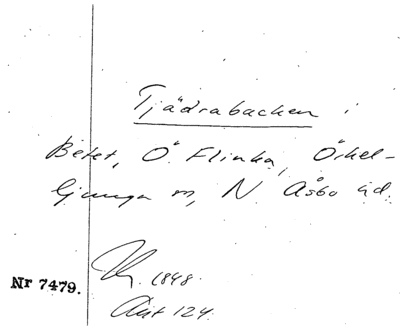 Tjädrabacken i
Betet, Ö. Flinka, Örkel-
ljunga sn, N. Åsbo hd.
1848.
Nr 7479.
Akt 124.